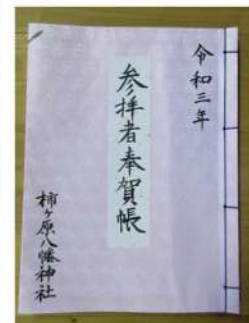 令和三年
参拝者奉賀帳
柿ヶ原八幡神社